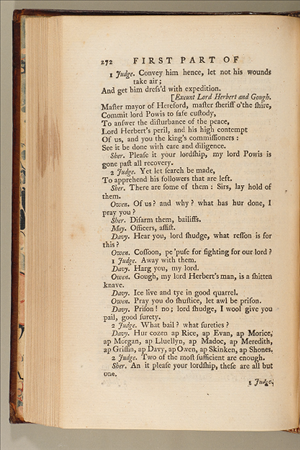 272 FIRST PART OF
1 Judge. Convey him hence, let not his wounds
take air;
And get him dreſs'd with expedition.
[Exeunt Lord Herbert and Gough.
Maſter mayor of Hereford, maſter ſheriff o'the ſhire,
Commit lord Powis to ſafe cuſtody,
To anſwer the diſturbance of the peace,
Lord Herbert's peril, and his high contempt
Of us, and you the king's commiſſioners:
See it be done with care and diligence.
Sher. Pleaſe it your lordſhip, my lord Powis is
gone paſt all recovery.
2 Judge. Yet let ſearch be made,
To apprehend his followers that are left.
Sher. There are ſome of them: Sirs, lay hold of
them.
Owen. Of us? and why? what has hur done, I
pray you?
Sher. Diſarm them, bailiffs.
May. Officers, aſſiſt.
Davy. Hear you, lord ſhudge, what reſſon is for
this?
Owen. Coſſoon, pe 'puſe for fighting for our lord?
1 Judge. Away with them.
Davy. Harg you, my lord.
Owen. Gough, my lord Herbert's man, is a ſhitten
knave.
Davy. Ice live and tye in good quarrel.
Owen. Pray you do ſhuſtice, let awl be priſon.
Davy. Priſon! no; lord ſhudge, I wool give you
pail, good ſurety.
2 Judge. What bail? what ſureties?
Davy. Hur cozen ap Rice, ap Evan, ap Morice,
ap Morgan, ap Lluellyn, ap Madoc, ap Meredith,
ap Griffin, ap Davy, ap Owen, ap Skinken, ap Shones.
2 Judge. Two of the moſt ſufficient are enough.
Sher. An it pleaſe your lordſhip, theſe are all but
one.
1 Judge.